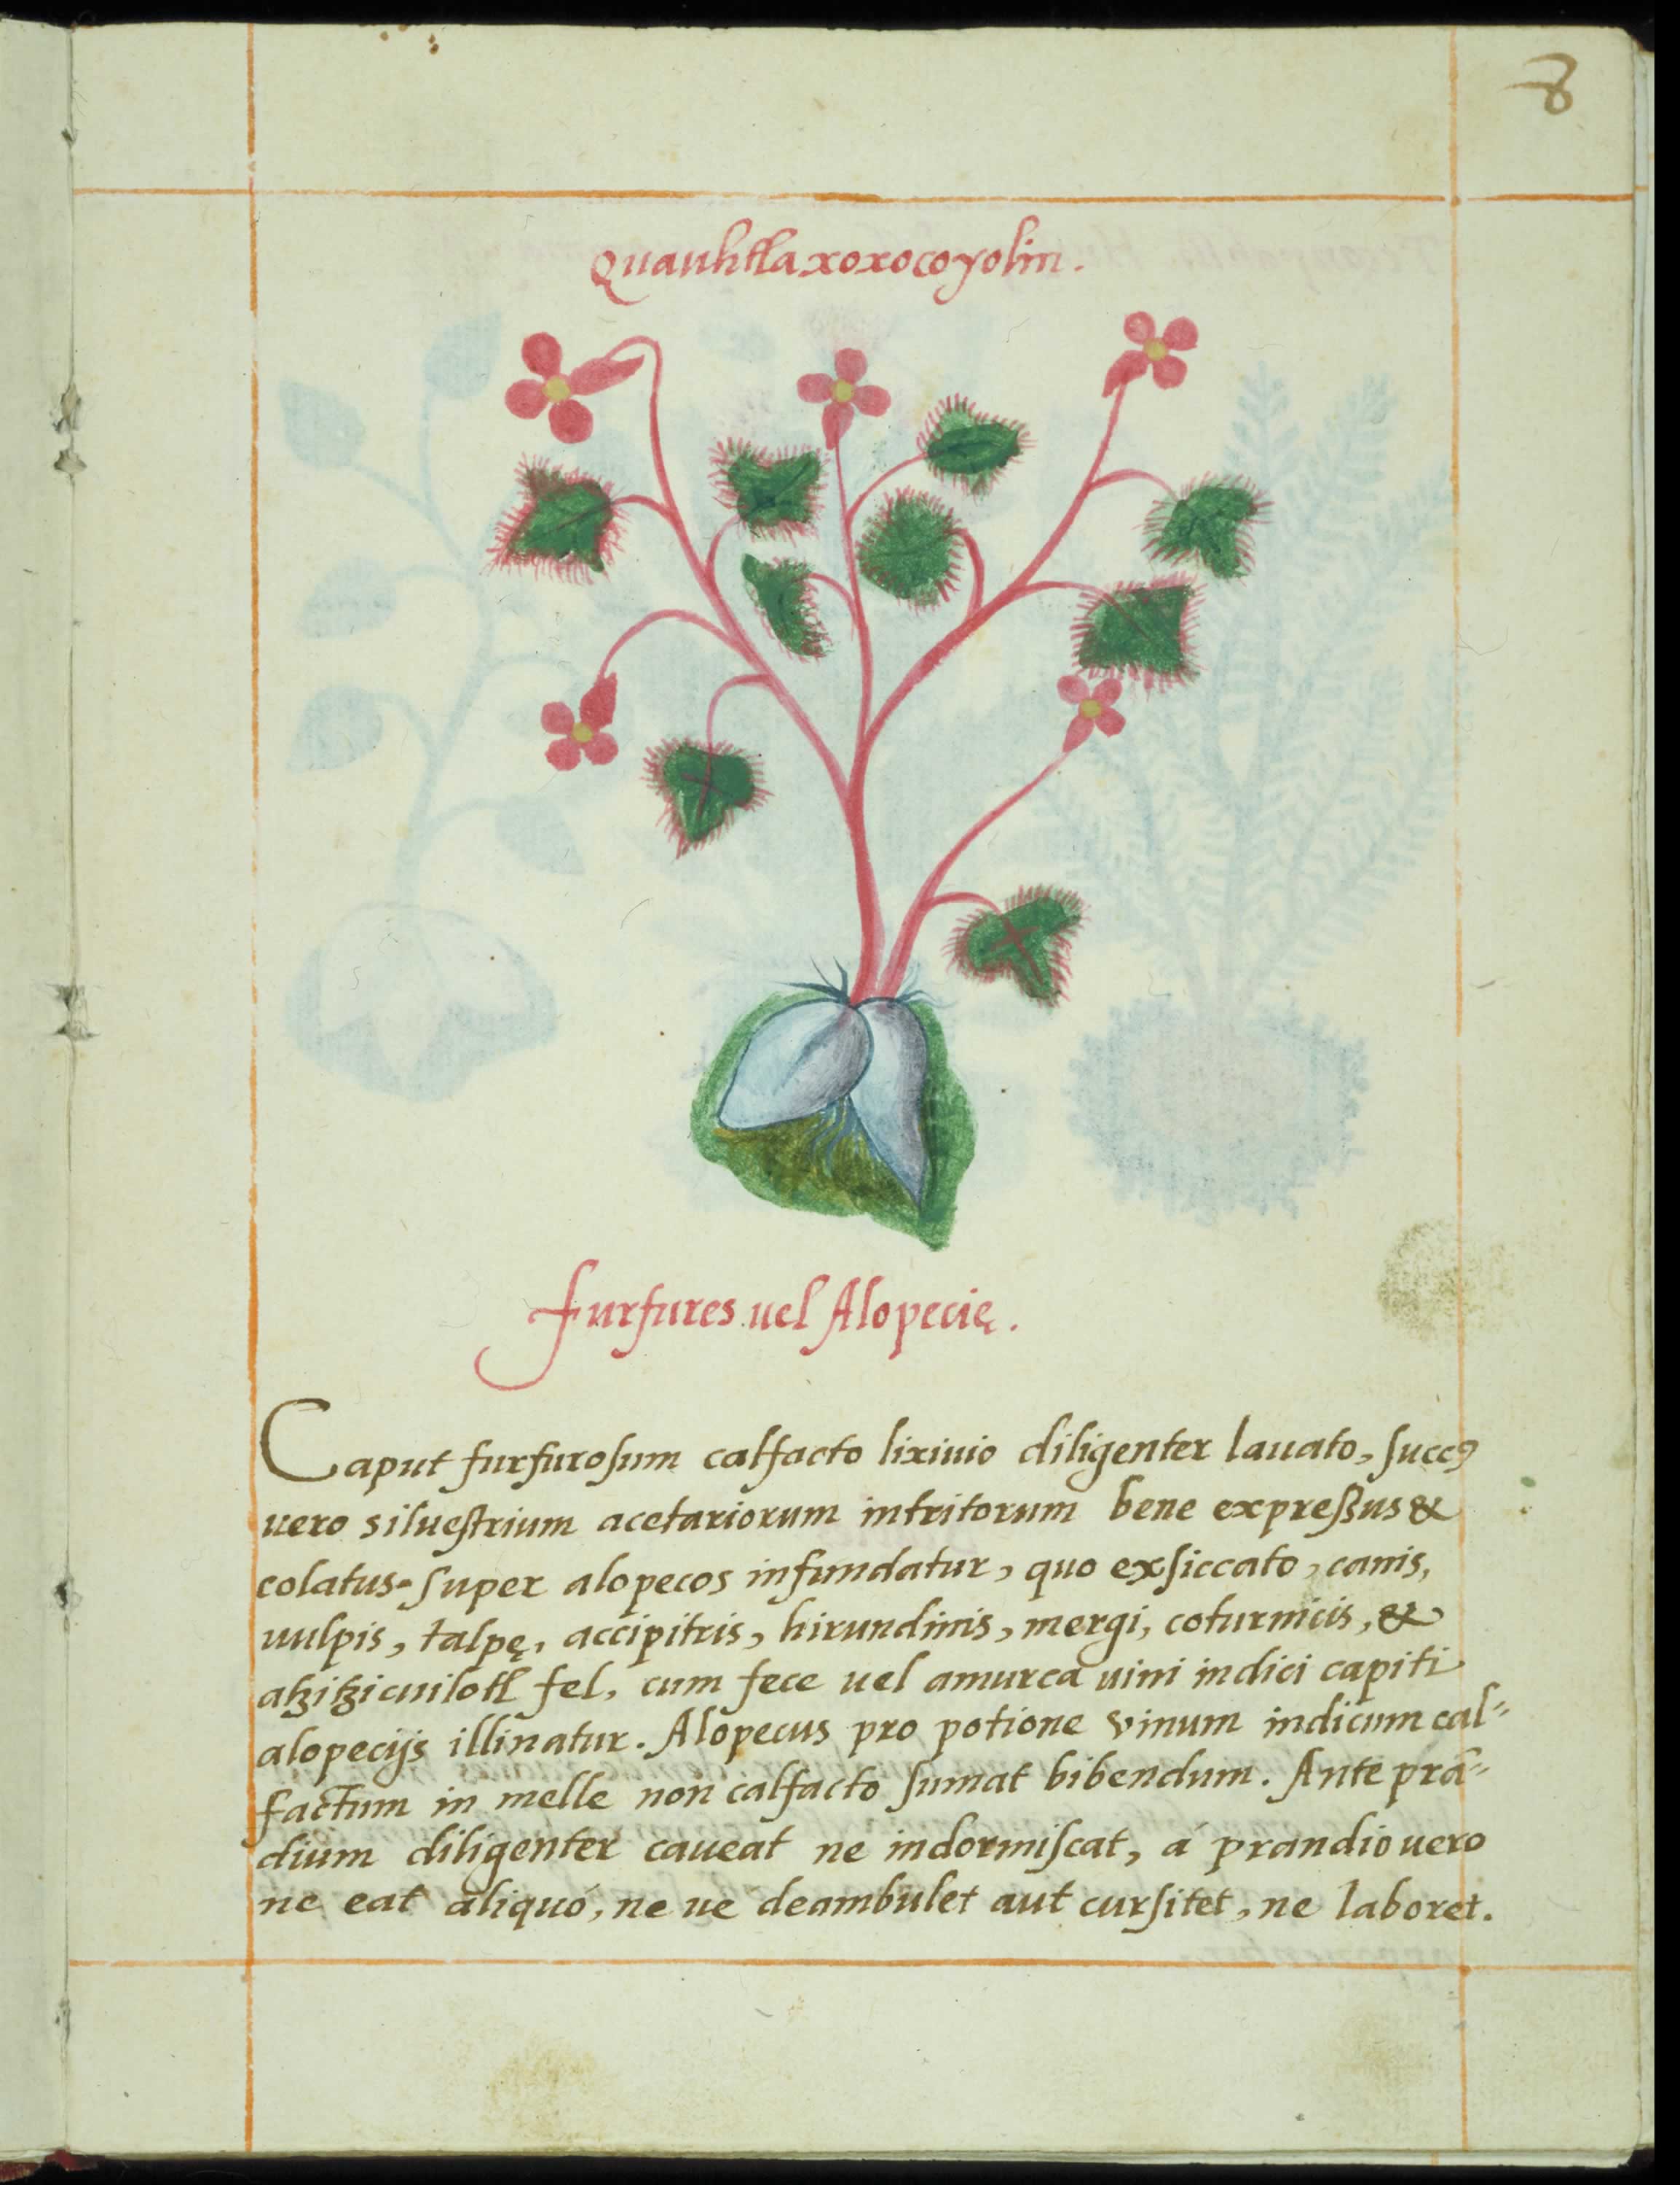 8
Quauhtlaxoxocoyolin.
Furfures uel Alopecię.
Caput furfurosum calfacto lixiuio diligenter lauato, succꝰ
uero siluestrium acetariorum intritorum bene expreßus &
colatus super alopecos infundatur, quo exsiccato, canis,
uulpis, talpę, accipitris, hirundinis, mergi, coturnicis, &
atzitzicuilotl fel, cum fece uel amurca uini indici capiti
alopecijs illinatur. Alopecus pro potione vinum indicum cal-
factum in melle non calfacto sumat bibendum. Ante prā-
dium diligenter caueat ne indormiscat, á prandio uero
ne eat aliquó, ne ue deambulet aut cursitet, ne laboret.